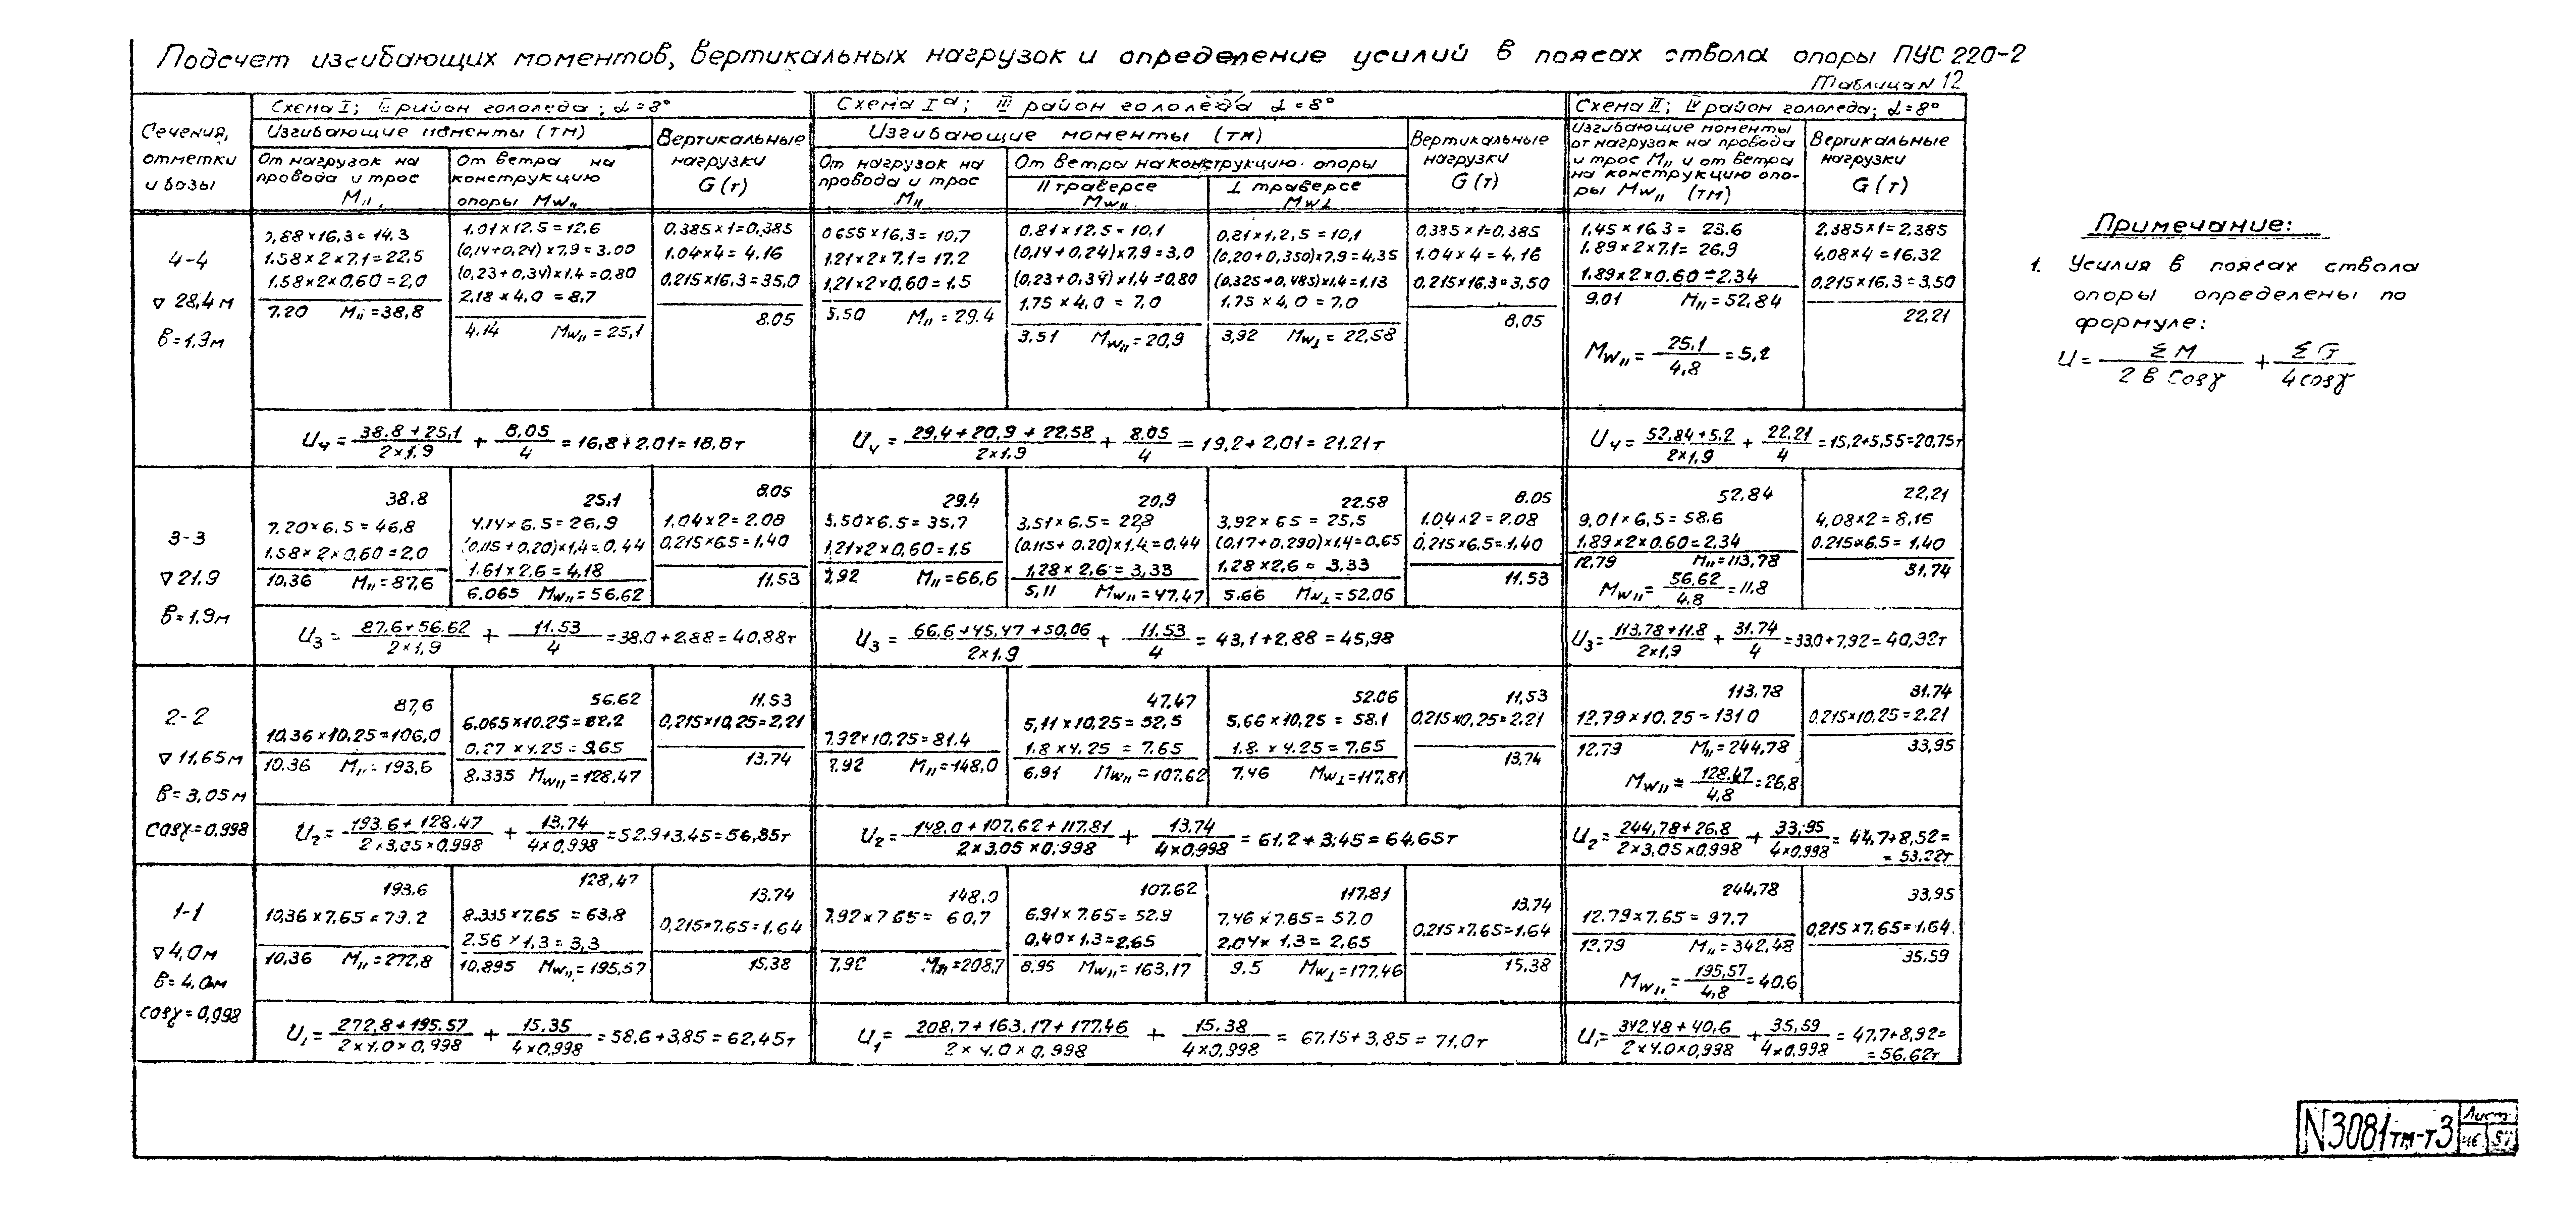 Подсчет изгибающих моментов, вертикальных нагрузок и определение усилий в поясах ствола опоры ПУС 220-2
Таблица N 12
Сечения,
отметки
и базы
Схема I; район гололеда; α=8°
Изгибающие моменты (тм)
От нагрузок на
провода и трос
M//
От ветра на
конструкцию
опоры Mw//
Вертикальные
нагрузки
G (т)
Схема Iª; III район гололеда α=8°
Изгибающие моменты (тм)
От нагрузок на
провода и трос
M//
От ветра на конструкцию опоры
// траверсе
Mw//
⊥ траверсе
Mw⊥
Вертикальные
нагрузки
G (т)
Схема II; IV район гололеда; α=8°
Изгибающие моменты
от нагрузок на провода
и трос M// и от ветра
на конструкцию опо-
ры Mw// (тм)
Вертикальные
нагрузки
G (т)
4-4
∇ 28,4 м
в=1,9м
0,88×16,3=14,3
1.58×2×7,1=22,5
1.58×2×0,60=2,0
7.20 M//=38,8
1.01×12.5=12.6
(0,14+0,24)×7,9=3.00
(0,23+0,34)×1.4=0,80
2,18×4,0=8,7
4.14 Mw//=25,1
0.385×1=0,385
1.04×4=4.16
0.215×16,3=35,0
8.05
0.655×16,3=10,7
1,21×2×7,1=17.2
1,21×2×0,60=1,5
5.50 M//=29.4
0.81×12.5=10,1
(0,14+0,24)×7,9=3,0
(0,23+0,34)×1,4=0,80
1,75×4,0=7,0
3,51 Mw//=20,9
0,81×1,2,5=10,1
(0,20+0,350)×7,9=4,35
(0,325+0,485)×1.4=1.13
1.75×4,0=7.0
3,92 Mw⊥=22,58
0,385×1=0,385
1.04×4=4,16
0,215×16.3=3,50
8,05
1,45×16.3=23.6
1.89×2×7.1=26,9
1.89×2×0.60=2.34
9.01 M//=52,84
Mw//=25,1/4,8=5,2
2.385×1=2,385
4,08×4=16,32
0,215×16.3=3,50
22,21
U4=(38.8+25,1)/(2×1,9)+8,05/4=16,8+2,01=18,8т
U4=(29,4+20,9+22,58)/(2×1,9)+8.05/4=19,2+2,01=21.21т
U4=(52,84+5.2)/(2×1,9)+22.21/4=15,2+5,55=20.75т
3-3
∇ 21,9
в=1.9м
38,8
7.20×6,5=46,8
1.58×2×0,60=2.0
10,36 M//=87,6
25,1
4.14×6.5=26,9
(0,115+0,20)×1,4=0,44
1.61×2,6=4,18
6.065 Mw//=56.62
8.05
1.04×2=2.08
0.215×6.5=1,40
11,53
29.4
5.50×6.5=35,7
1,21×2×0,60=1,5
7,92 M//=66,6
20,9
3,51×6.5=22,8
(0,115+0,20)×1.4=0,44
1,28×2,6=3,33
5,11 Mw//=47,47
22,58
3,92×65=25,5
(0,17+0,290)×1,4=0,65
1.28×2,6=3,33
5.66 Mw⊥=52,06
8.05
1.04×2=2.08
0,215×6.5=1,40
11,53
52,84
9,01×6,5=58,6
1,89×2×0.60=2,34
12,79 M//=113,78
Mw//=56,62/4.8=11,8
22,21
4,08×2=8,16
0.215×6.5=1,40
31,74
U3=(87.6+56.62)/(2×1,9)+11.53/4=38,0+2.88=40,88т
U3=(66,6+45,47+50,06)/(2×1,9)+11.53/4=43,1+2,88=45,98
U3=(113,78+11.8)/(2×1,9)+31.74/4=33,0+7,92=40,92т
2-2
∇ 11,65м
в=3,05м
cosγ=0,998
87,6
10,36×10,25=106,0
10.36 M//=193,6
56.62
6.065×10.25=62.2
0.27×4.25=9,65
8.335 Mw//=128,47
11.53
0,215×10.25=2,21
13.74
7.92×10,25=81.4
7.92 M//=148,0
47.47
5,11×10,25=52,5
1.8×4.25=7.65
6,91 Mw//=107.62
52.06
5,66×10,25=58,1
1.8×4.25=7,65
7,46 Mw⊥=117,81
11,53
0,215×10,25=2,21
13,74
113.78
12.79×10,25=131 0
12,79 M//=244,78
Mw//=128.47/4,8=26,8
31.74
0.215×10.25=2.21
33,95
U2=(193.6+128.47)/(2×3,05×0,998)+13.74/(4×0,998)=52.9+3.45=56,35т
U2=(148.0+107.62+117.81)/(2×3.05×0,998)+13.74/(4×0,998)=61,2+3,45=64.65т
U2=(244,78+26,8)/(2×3,05×0.998)+33,95/(4×0,998)=44,7+8,52=
=53,22т
1-1
∇ 4,0м
в=4,0м
cosγ=0,998
193.6
10,36×7.65=79.2
10,36 M//=272,8
128,47
8.335×7.65=63,8
2.56×1,3=3,3
10,895 Mw//=195,57
13.74
0,215×7.65=1,64
15,38
148,0
7.92×7.65=60,7
7.92 M//=208,7
107.62
6.91×7.65=52.9
0,40×1.3=2,65
8.95 Mw//=163,17
117,81
7.46×7.65=57.0
2,04×1,3=2,65
9.5 Mw⊥=177,46
13.74
0,215×7.65=1.64
15,38
244,78
12.79×7.65=97.7
12,79 M//=342,48
Mw//=195,57/4,8=40.6
33,95
0,215×7,65=1,64
35.59
U1=(272,8+195.57)/(2×4.0×0,998)+15.35/(4×0,998)=58.6+3,85=62,45т
U1=(208,7+163,17+177,46)/(2×4.0×0,998)+15.38/(4×0,998)=67.15+3,85=71,0т
U1=(342.48+40,6)/(2×4.0×0,998)+35,59/(4×0,998)=47.7+8,92=
=56,62т
Примечание:
1. Усилия в поясах ствола
опоры определены по
формуле:
U=ΣM/(2 в Cosγ)+ΣG/(4 cosγ)
N3081тм-т3
Лист
46